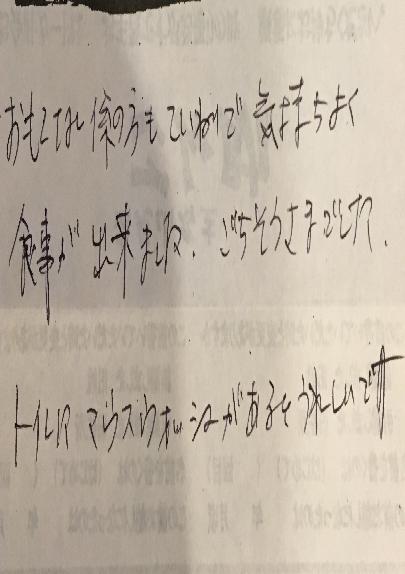 おもてなし係の方もていねいで 気持ちよく
食事が 出来ました. ごちそうさまでした.
トイレに マウスウォッシュがあるとうれしいです